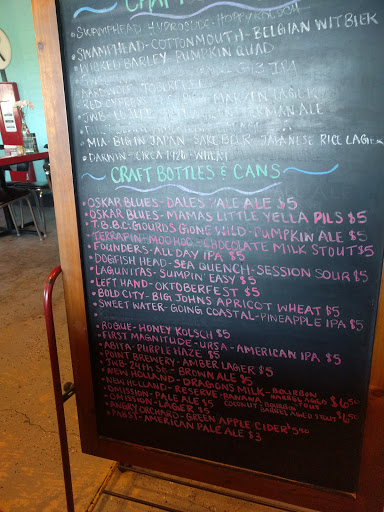 CRAFT
• SWAMPHEAD-
• SWAMPHEAD-COTTONMOUTH-BELGIAN WITBIER
BARLEY PUMPKIN QUAD
IPA
RED CYPRESS
ALE
• MIA-BIG IN JAPAN-SAKE BEER-JAPANESE RICE LAGER
• DARWIN-CIRCA 1926-WHEAT
CRAFT BOTTLES & CANS
• OSKAR BLUES-DALES PALE ALE $5
• OSKAR BLUES-MAMAS LITTLE YELLA PILS $5
• T.B.B.C. GOURDS GONE WILD-PUMPKIN ALE $5
• TERRAPIN-MOOHOO-CHOCOLATE MILK STOUT $5
• FOUNDERS-ALL DAY IPA $5
• DOGFISH HEAD-SEA QUENCH-SESSION SOUR $5
• LAGUNITAS-SUMPIN EASY $5
• LEFT HAND-OKTOBERFEST $5
• BOLD CITY-BIG JOHNS APRICOT WHEAT $5
• SWEET WATER-GOING COASTAL-PINEAPPLE IPA $5
• ROGUE-HONEY KOLSCH $5
• FIRST MAGNITUDE-URSA-AMERICAN IPA $5
• ABITA-PURPLE HAZE $5
• POINT BREWERY-AMBER LAGER $5
• THE 24TH ST.-BROWN ALE $5
• NEW HOLLAND-DRAGONS MILK-BOURBON BARREL AGED $6.50
• NEW HOLLAND-RESERVE-BANANA COCONUT-BOURBON BARREL AGED STOUT $6.50
• OMISSION-PALE ALE $5
• OMISSION-LAGER $5
• ANGRY ORCHARD-GREEN APPLE CIDER $5.50
• PABST-AMERICAN PALE ALE $3